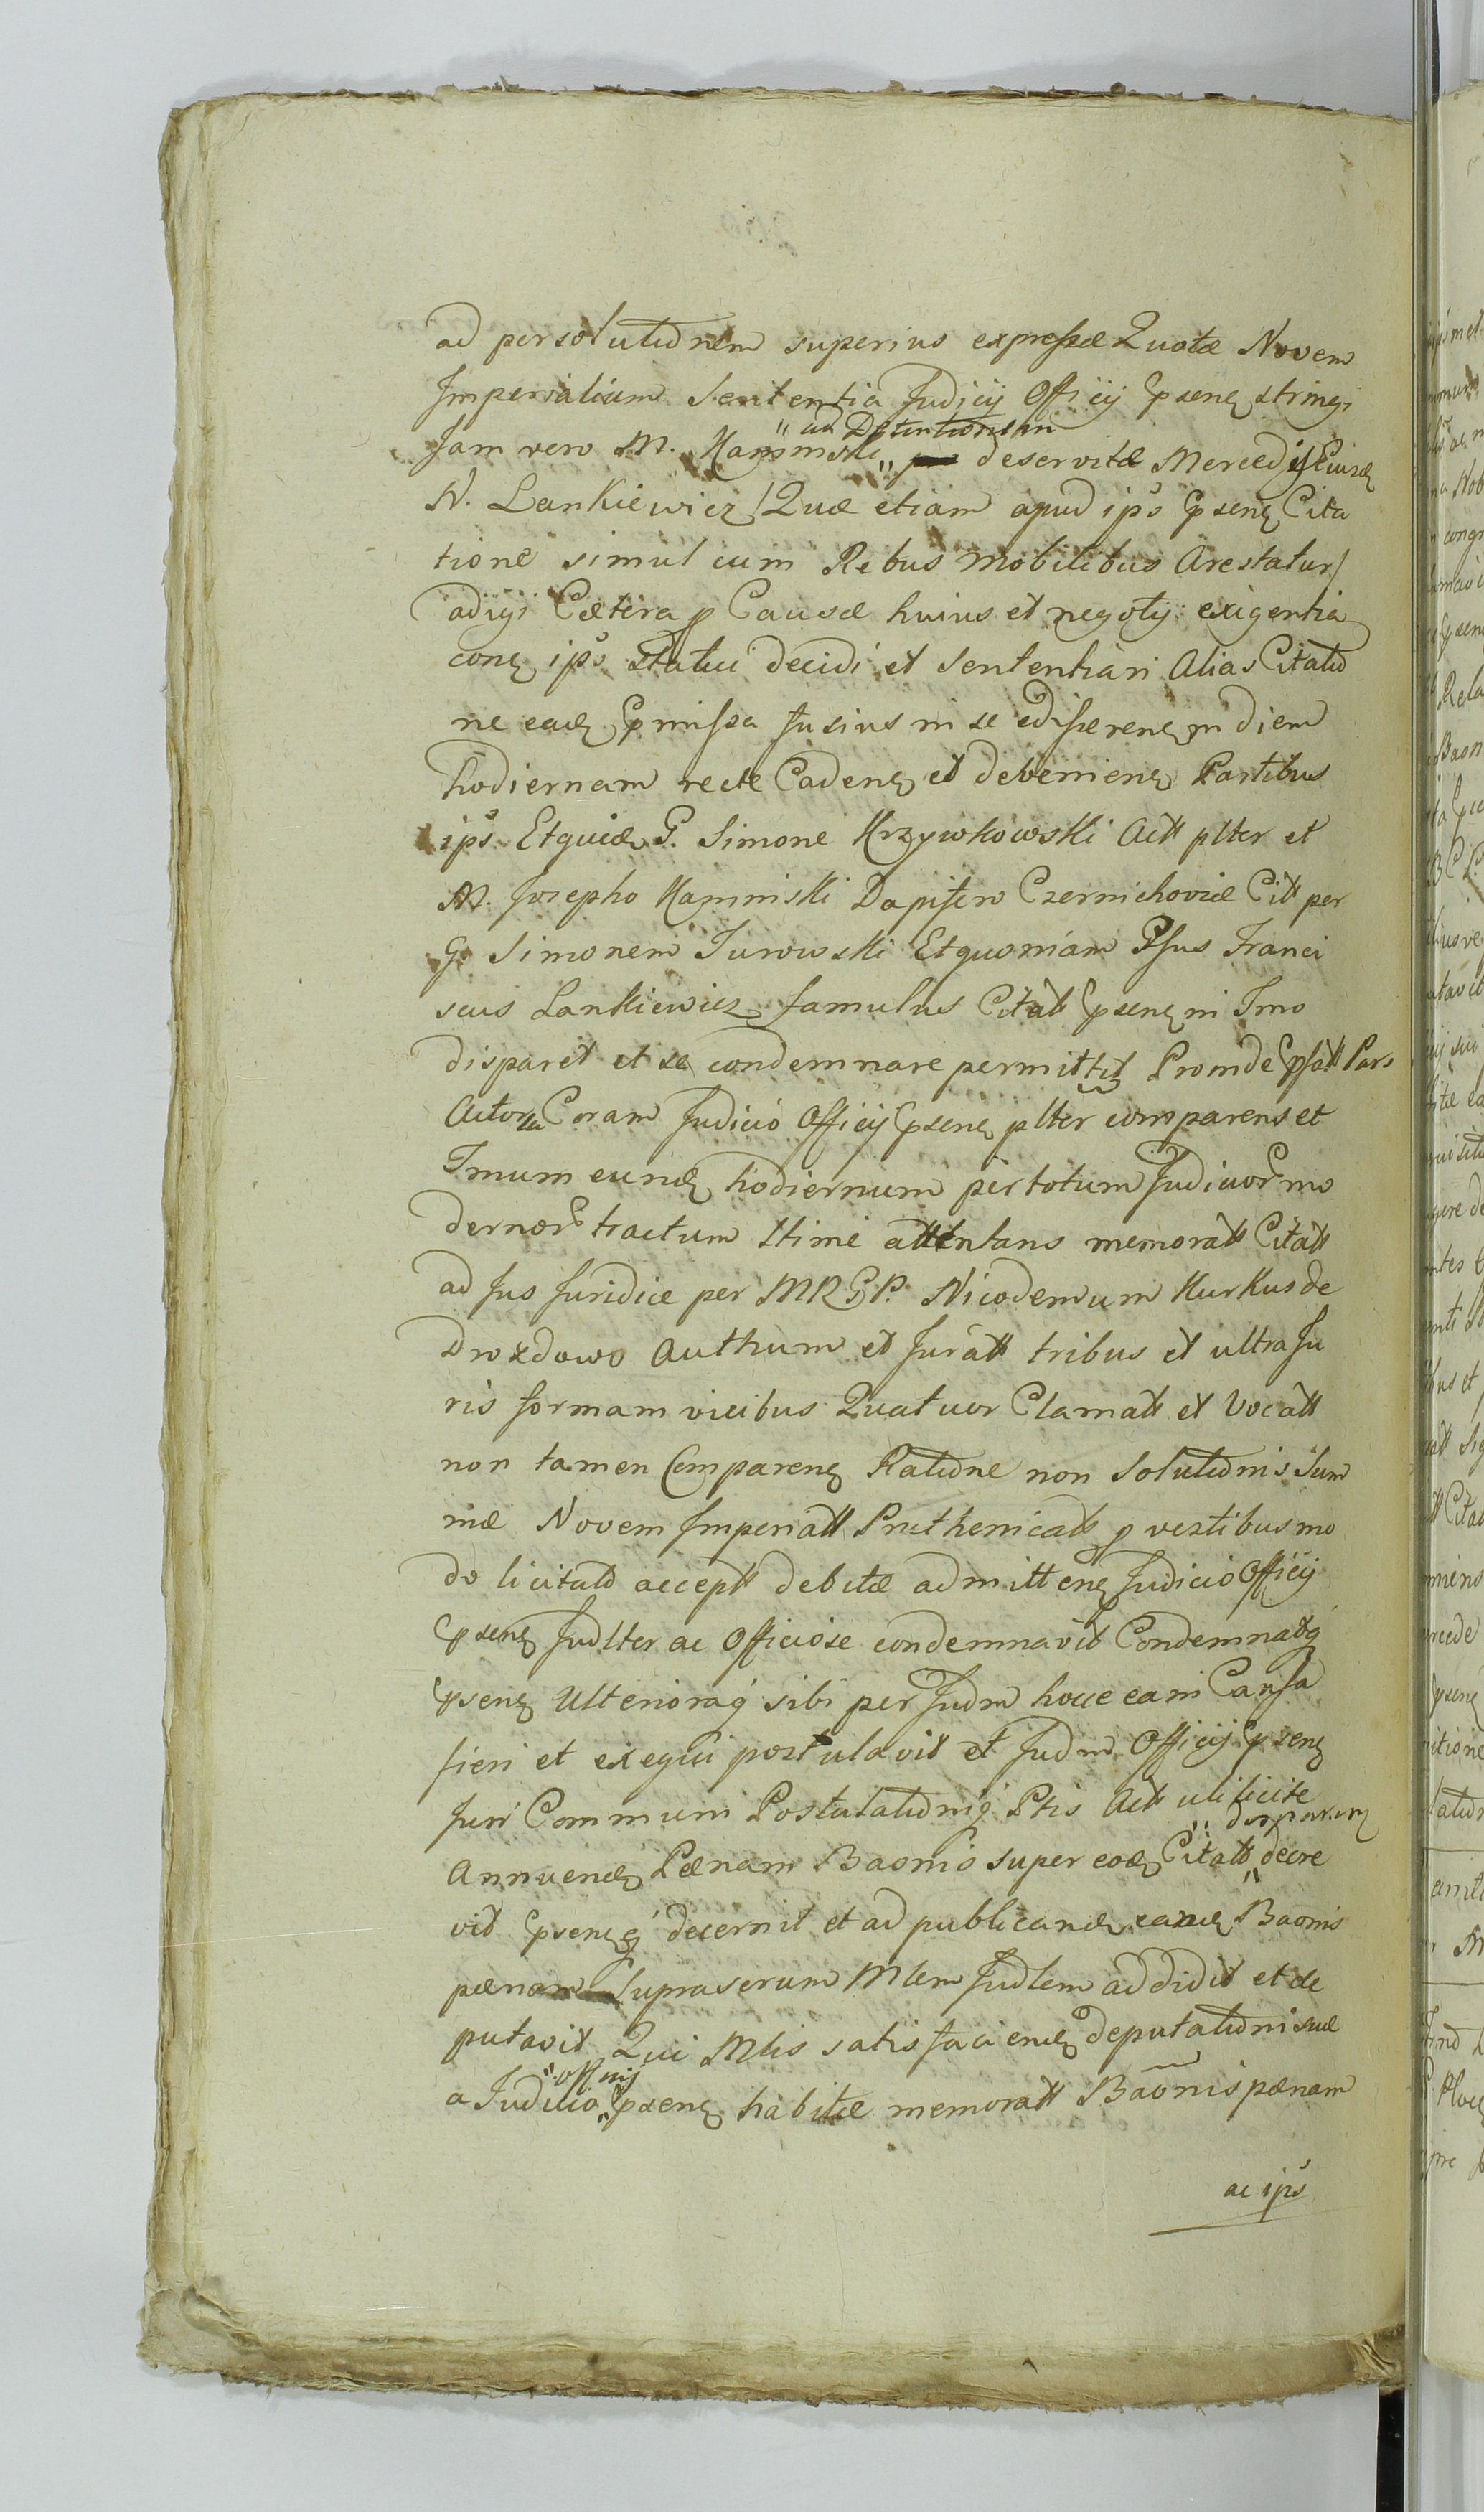 ad persolutionem superius expressæ Quotæ Novem
Imperialium Sententia Judicij Officij pnseng stringi
Jam vero M. Kaminski „ ad Detentionem „ deservitæ Mercedis Eiusd
N. Lankiewicz /Quæ etiam apud ips pnseng Cita
tione simul cum Rebus mobilibus Arestatur/
adigi Cætera p Causæ huius et negotij exigentia
cong ips Statui decidi et Sententiari Alias Citatio
ne ead pmissa fusius in se edissereng in diem
hodiernam recte Cadeng et devenieng Partibus
ips Etquid G. Simone Krzywkowski Actt plter et
M. Josepho Kaminski Dapifero Czernichoviæ Citt per
G. Simonem Turowski Etquoniam Pfus Franci
scus Lankiewicz famulus Citatt pnseng in Tmo
disparet et se condemnare permittit Proinde pfatt Pars
Actorea Coram Judicio Officij pnseng plter comparens et
Tmum eund hodiernum per totum Judicior mo
dernor tractum ltime attentans memoratt Citatt
ad Jus Juridice per MRGP. Nicodemum Kurkus de
Drozdowo Authum et Juratt tribus et ultra Ju
ris formam vicibus Quatuor Clamatt et Vocatt
non tamen Compareng Ratione non Solutionis Sum
mæ Novem Imperiatt Pruthenicatt p vestibus mo
do licitato acceptt debitæ admitteng Judicio Officij
pnseng Judlter ac Officiose condemnavit Condemnatq
pnseng Ulterioraq sibi per Judm hocce ea in Causa
fieri et exequi postulavit et Judm Officij pnseng
Juri Communi Postulationiq Ptis Actt uti licite
Annuend Pænam Baonis super eod Citatt „ dispareng „ decre
vit pnsengq decernit et ad publicand eand Baonis
pænam Suprascrum Mlem Judlem addidit et de
putavit Qui Mlis satisfaciend deputationi suæ
a Judicio „ officij „ pnseng habitæ memoratt Baonis pænam
ac ips